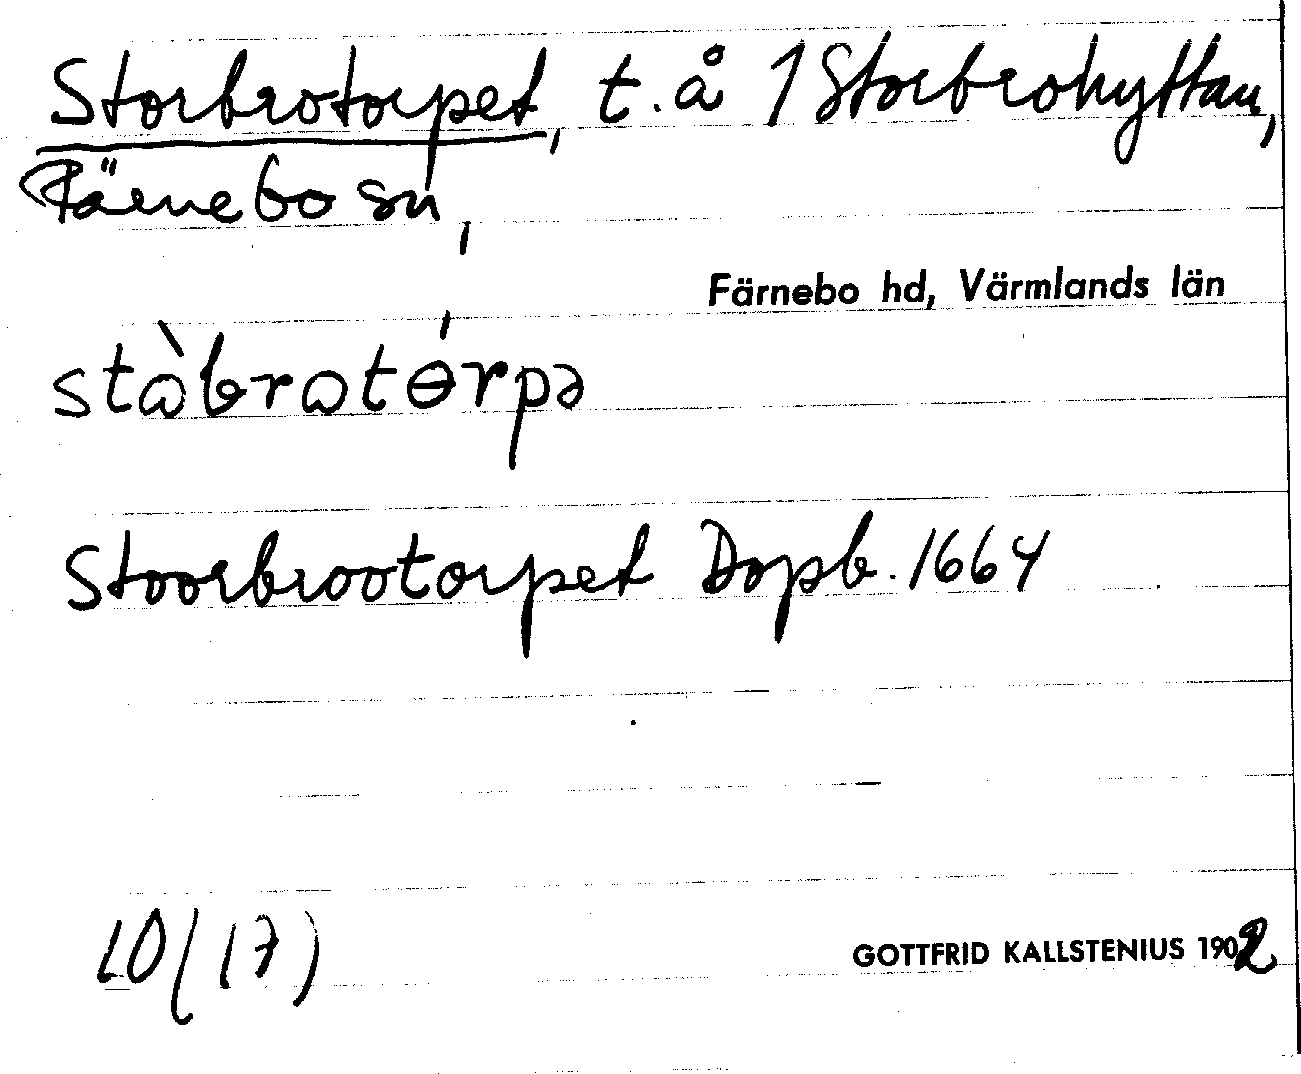 Storbrotorpet, t. å 1 Storbrohyttan,
Färnebo sn,
Färnebo hd, Värmlands län
stàbratɵ́rpə
Stoorbrootorpet Dopb. 1664
10/(17)
GOTTFRID KALLSTENIUS 1902